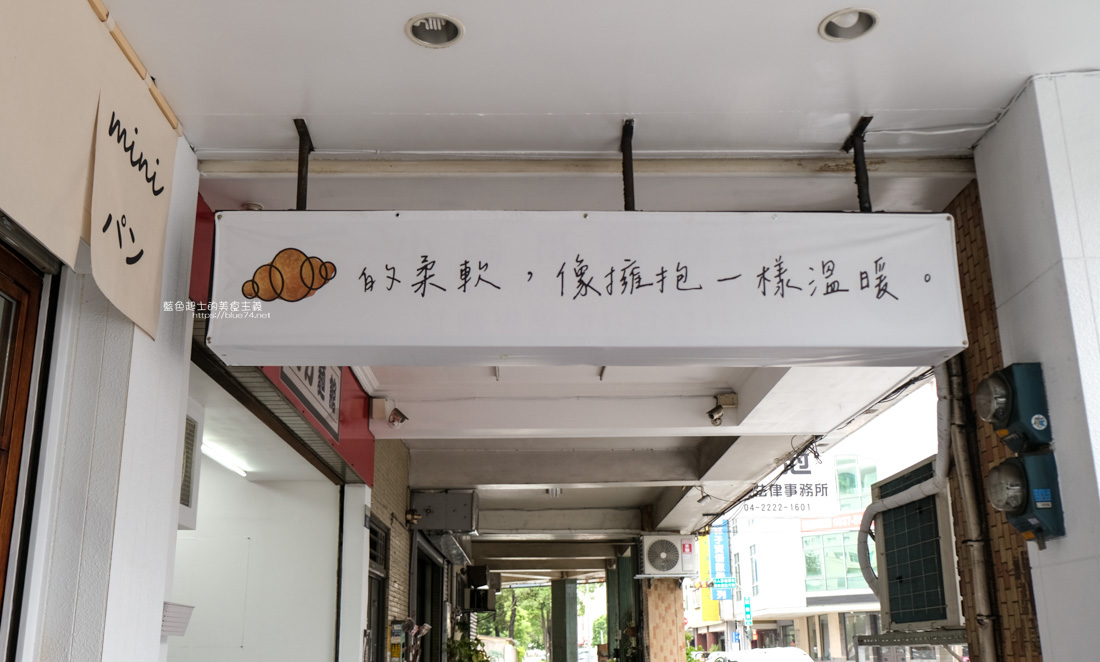 mini
パン
的柔軟，像擁抱一樣溫暖。
藍色起士的美食主義
https://blue74.net
法律事務所
04-2222-1601